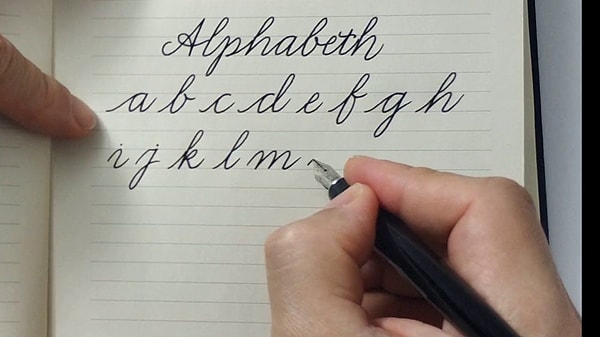 Alphabeth
a b c d e f g h
i j k l m